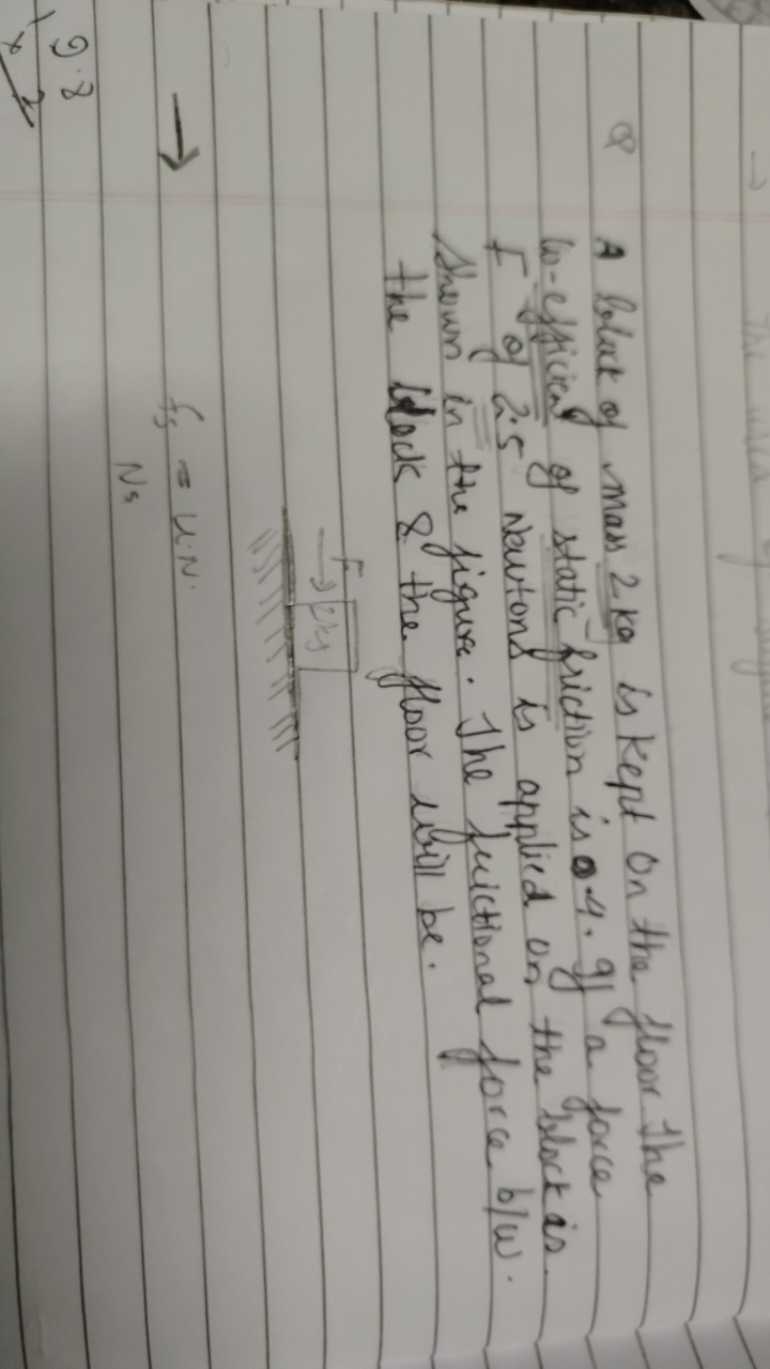 Q A block of mass 2 kg is kept on the floor The
co-efficient of static friction is 0.4. If a force
F of 2.5 Newtons is applied on the block is
shown in the figure. The frictional force b/w.
the block & the floor will be.
F
2kg
→
fs = u.N.
Ns
9.8